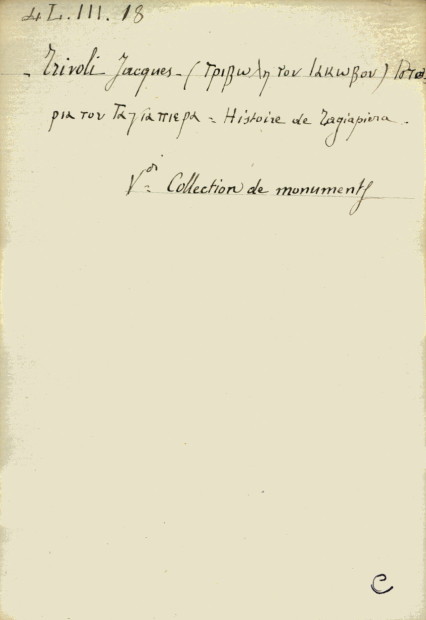 4 L. III. 18
- Trivoli Jacques - (Τριβωλη του Ιακωβου) Ιστο-
ρια του Ταγιαπιερα = Histoire de Tagiapiera.
V.di Collection de monuments
C